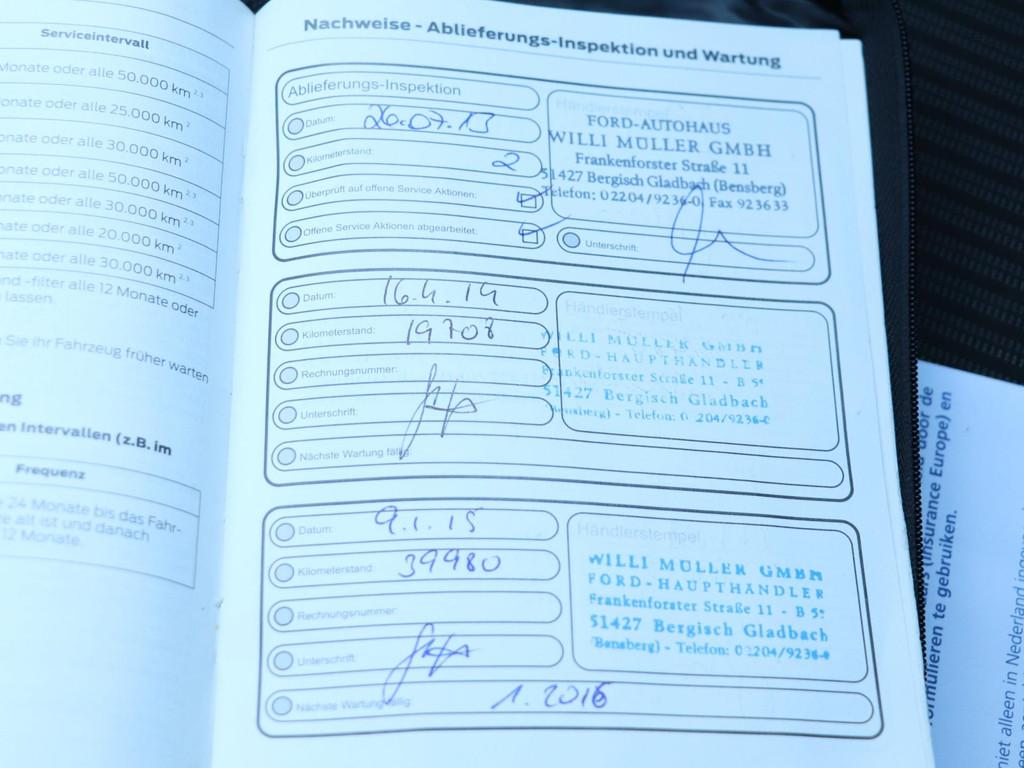 Serviceintervall
Monate oder alle 50.000 km 2,3
onate oder alle 25.000 km 2
onate oder alle 30.000 km 2
onate oder alle 50.000 km 2,3
nate oder alle 30.000 km 2,3
nate oder alle 20.000 km 2
nate oder alle 30.000 km 2,3
nd -filter alle 12 Monate oder
lassen.
Sie ihr Fahrzeug früher warten
ng
en Intervallen (z.B. im
Frequenz
24 Monate bis das Fahr-
e alt ist und danach
12 Monate.
Nachweise - Ablieferungs-Inspektion und Wartung
Ablieferungs-Inspektion
Datum: 26.07.13
Kilometerstand: 2
Überprüft auf offene Service Aktionen:
Offene Service Aktionen abgearbeitet:
Händlerstempel
FORD-AUTOHAUS
WILLI MÜLLER GMBH
Frankenforster Straße 11
51427 Bergisch Gladbach (Bensberg)
Telefon: 02204/9236-0, Fax 923633
Unterschrift:
Datum: 16.4.14
Kilometerstand: 19708
Rechnungsnummer:
Unterschrift:
Nächste Wartung fällig:
Händlerstempel
WILLI MÜLLER GMBH
FORD-HAUPTHÄNDLER
Frankenforster Straße 11 - B 5
51427 Bergisch Gladbach
(Bensberg) - Telefon: 0 204/9236-0
Datum: 9.1.15
Kilometerstand: 39980
Rechnungsnummer:
Unterschrift:
Nächste Wartung fällig: 1.2016
Händlerstempel
WILLI MÜLLER GMBH
FORD-HAUPTHÄNDLER
Frankenforster Straße 11 - B 5
51427 Bergisch Gladbach
(Bensberg) - Telefon: 02204/9236-0
door de
(Insurance Europe) en
ormulieren te gebruiken.
niet alleen in Nederland